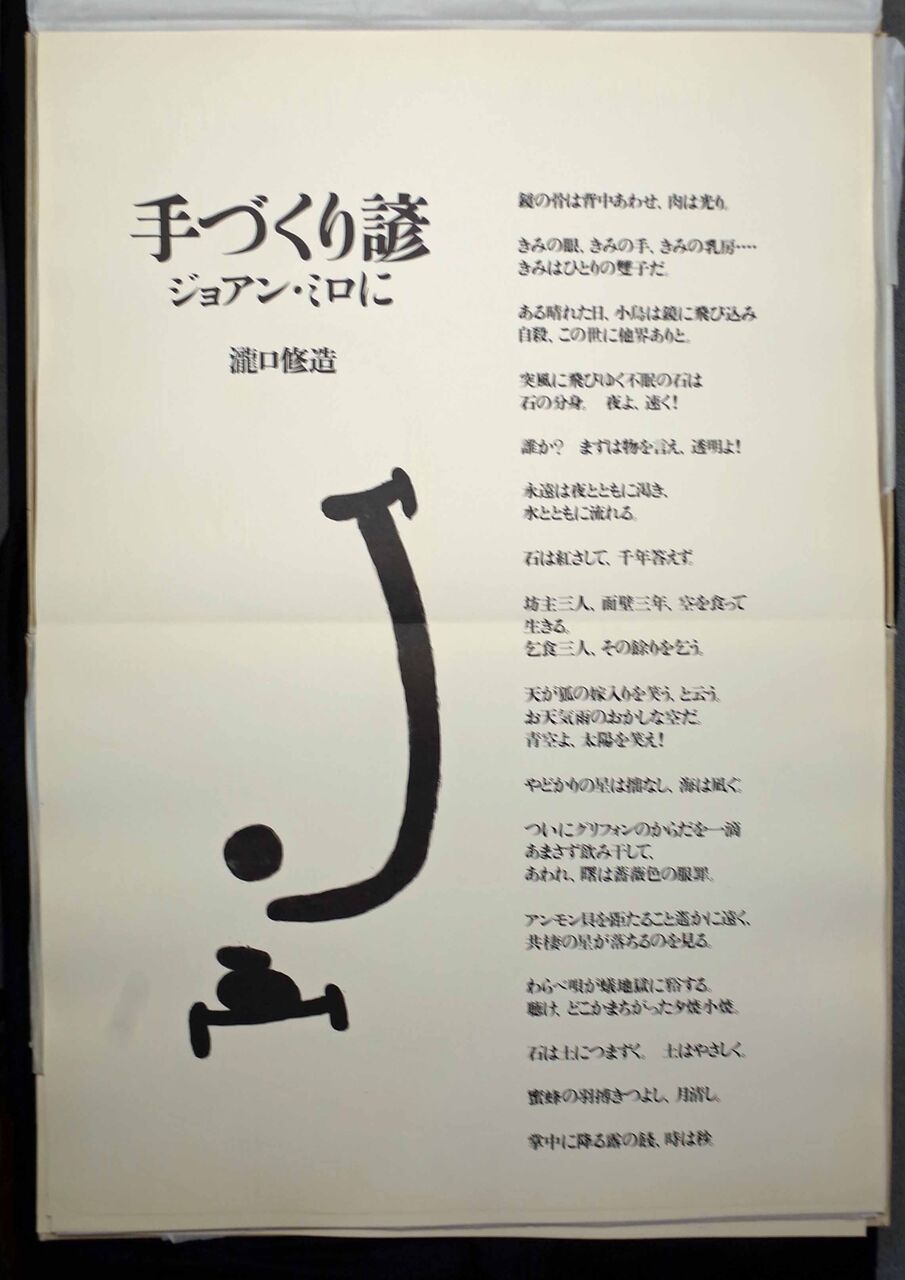 手づくり諺
ジョアン・ミロに
瀧口修造
鏡の骨は背中あわせ、肉は光り。
きみの眼、きみの手、きみの乳房‥‥
きみはひとりの雙子だ。
ある晴れた日、小鳥は鏡に飛び込み
自殺、この世に他界ありと。
突風に飛びゆく不眠の石は
石の分身。 夜よ、速く!
誰か? まずは物を言え、透明よ!
永遠は夜とともに渇き、
水とともに流れる。
石は紅さして、千年答えず。
坊主三人、面壁三年、空を食って
生きる。
乞食三人、その餘りを乞う。
天が狐の嫁入りを笑う、と云う。
お天気雨のおかしな空だ。
青空よ、太陽を笑え!
やどかりの星は揺なし、海は凪ぐ。
ついにグリフォンのからだを一滴
あまさず飲み干して、
あわれ、曙は薔薇色の服罪。
アンモン貝を距たること遥かに遠く、
共棲の星が落ちるのを見る。
わらべ唄が蟻地獄に谺する。
聴け、どこかまちがった夕焼小焼。
石は土につまずく。 土はやさしく。
蜜蜂の羽搏きつよし、月清し。
掌中に降る露の餞、時は秋